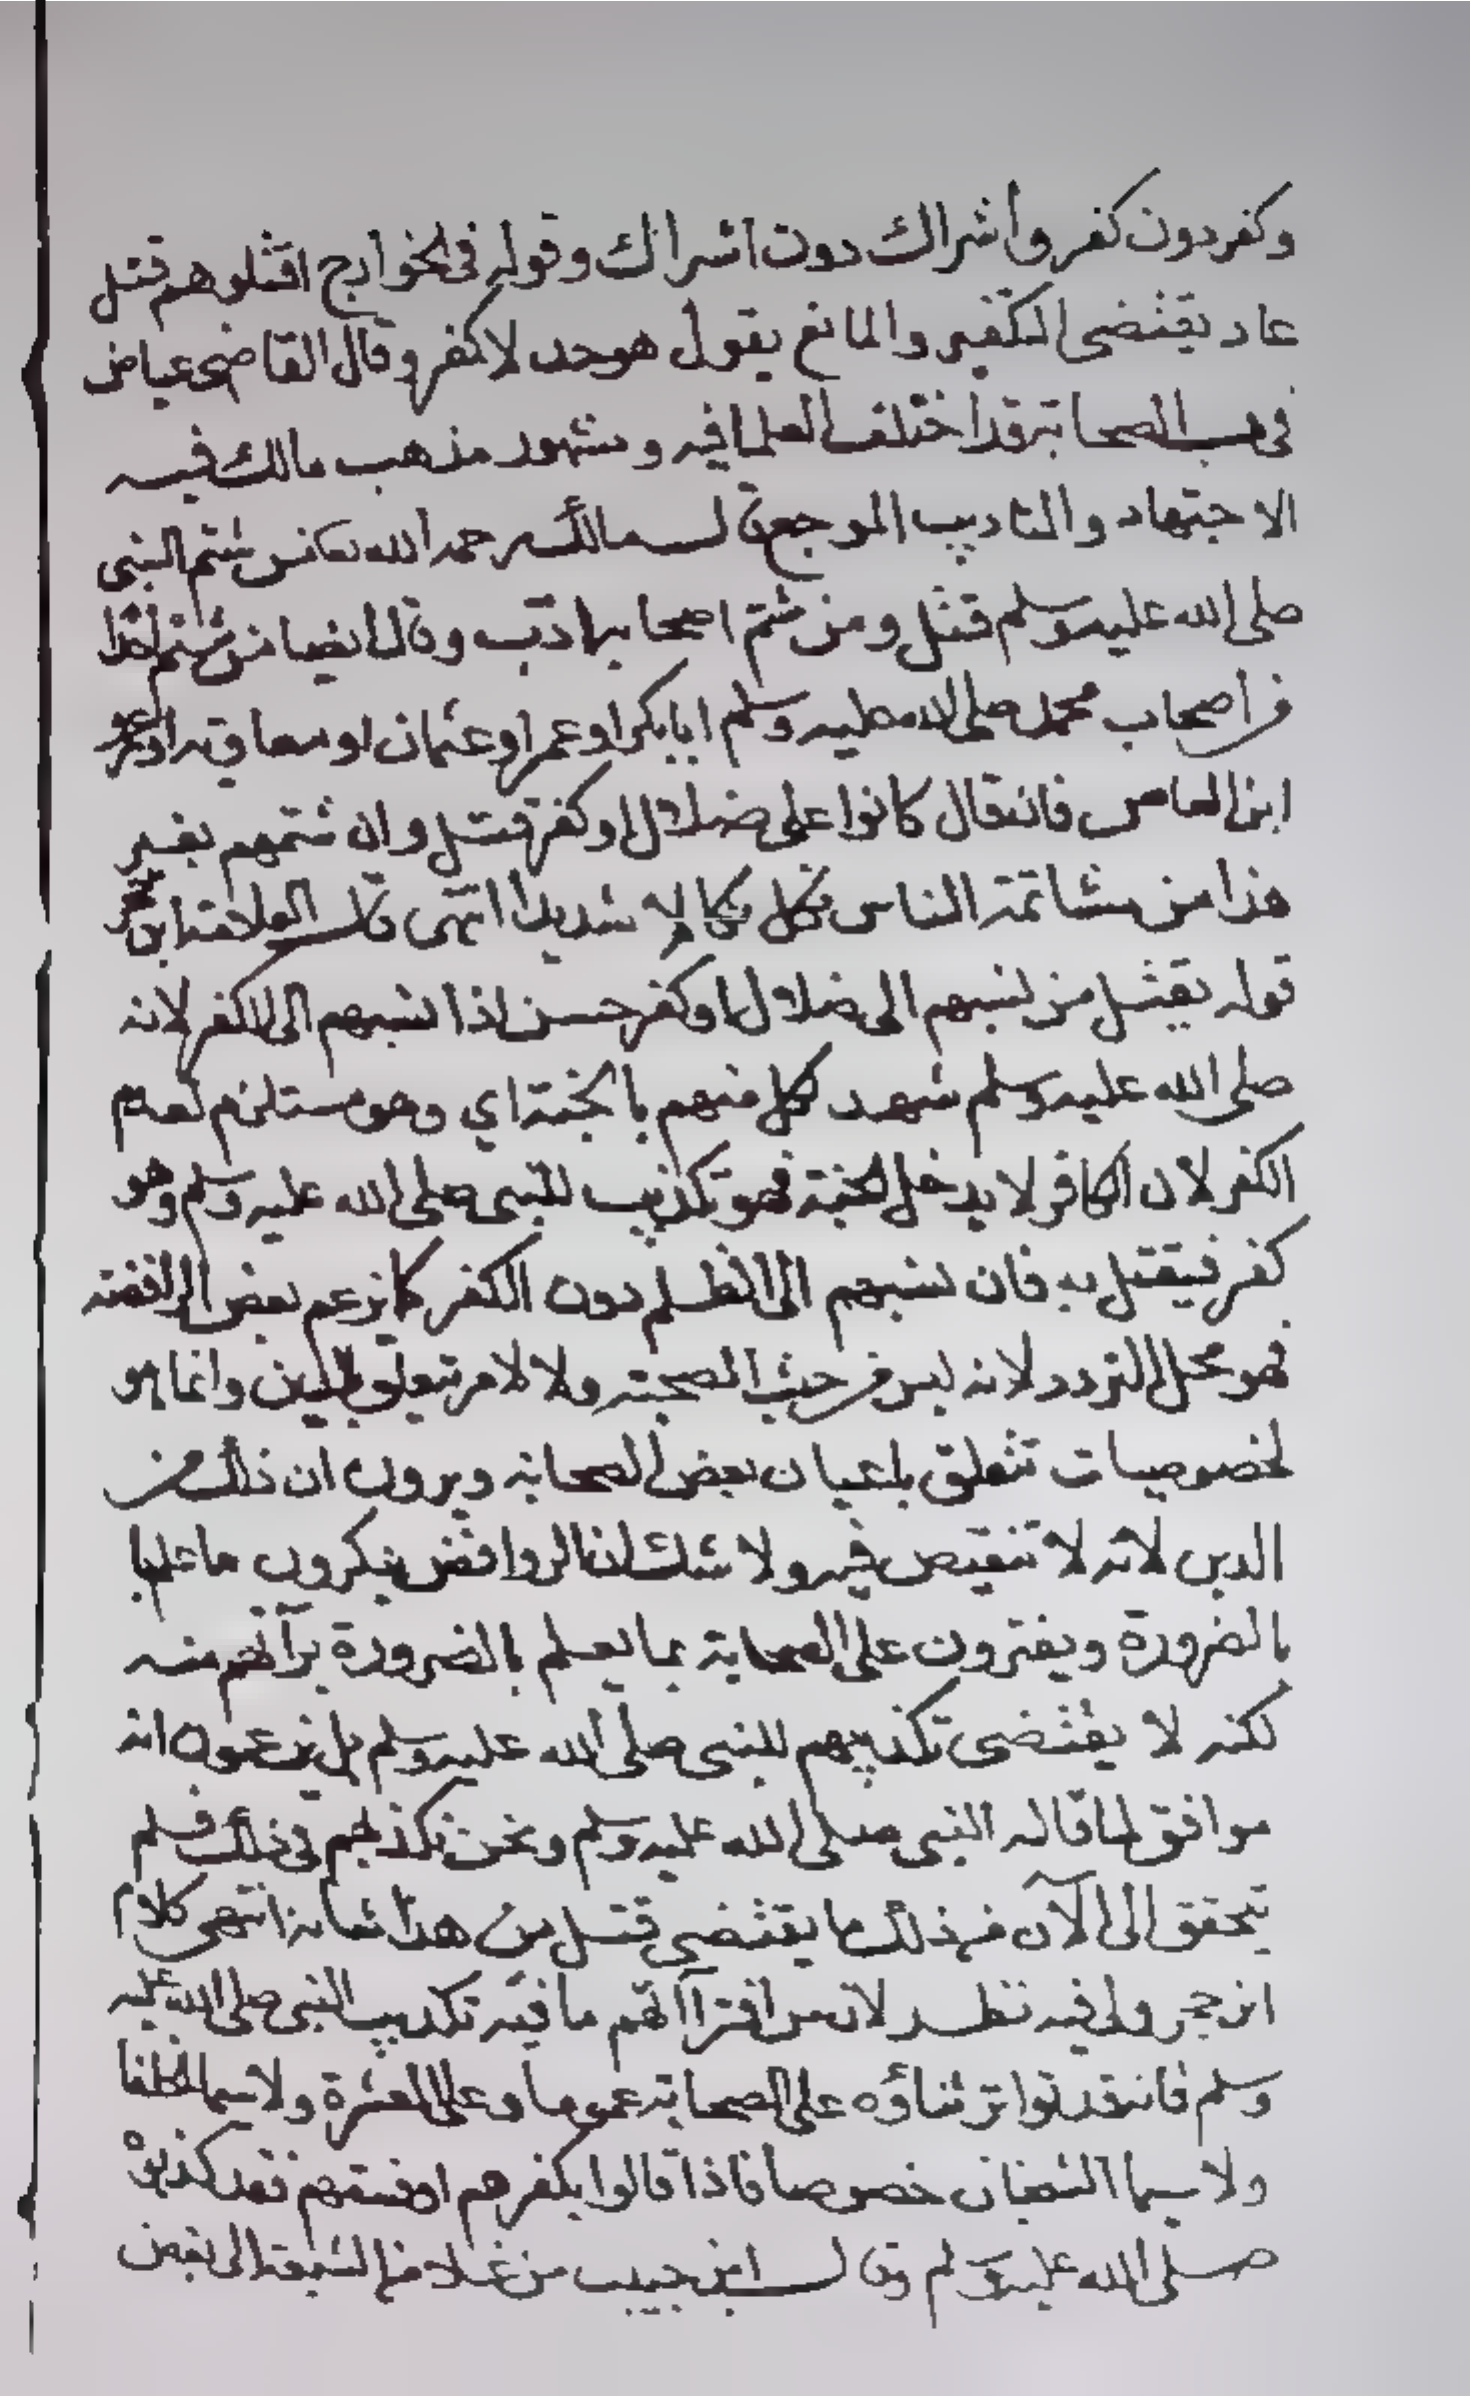 وكفر دون كفر وأشراك دون اشراك وقوله في الخوارج اقتلوهم قتل
عاد يقتضي التكفير والمانع يقول هو حد لا كفر وقال القاضي عياض
في سب الصحابة قد اختلف العلما فيه ومشهور مذهب مالك فيه
الاجتهاد والتاديب الموجع قال مالك رحمه الله تعا من شتم النبي
صلى الله عليه وسلم قتل ومن شتم اصحابه ادب وقال ايضا من شتم احدا
من أصحاب محمد صلى الله عليه وسلم ابا بكر او عمر او عثمان او معاوية او عمرو
ابن العاص فان قال كانوا على ضلال او كفر قتل وان شتمهم بغير
هذا من مشاتمة الناس نكل نكالا شديدا انتهى قال العلامة ابن حجر
قوله يقتل من نسبهم الى ضلال او كفر حسن اذا نسبهم الى الكفر لانه
صلى الله عليه وسلم شهد كل منهم بالجنة اي وهو مستلزم لعدم
الكفر لان الكافر لا يدخل الجنة فهو تكذيب للنبي صلى الله عليه وسلم وهو
كفر فيقتل به فان نسبهم الى الظلم دون الكفر كما يزعم بعض الرافضة
فهو محل التردد لانه ليس من حيث الصحبة ولا لامر يتعلق بالدين وانما هو
لخصوصيات تتعلق باعيان بعض الصحابة ويرون ان ذلك من
الدين لانه لا تنقيص فيه ولا شك ان الروافض ينكرون ما علم با
بالضرورة ويفترون على الصحابة بما يعلم بالضرورة برآتهم منه
لكنه لا يقتضي تكذيبهم للنبي صلى الله عليه وسلم بل يزعمون انه
موافق لما قاله النبي صلى الله عليه وسلم ونحن نكذبهم في ذلك فلم
يتحقق الى الآن من ذلك ما يقتضي قتل من هذا شانه انتهى كلام
ابن حجر ولي فيه نظر لان من افترآاتهم ما فيه تكذيب النبي صلى الله عليه
وسلم فانه قد تواتر ثناؤه على الصحابة عموما وعلى العشرة ولا سيما الخلفا
ولا سيما الشيخان خصوصا فاذا قالوا بكفرهم او فسقهم فقد كذبوه
صلى الله عليه وسلم وقال ابن حبيب من غلا من الشيعة الى بغض